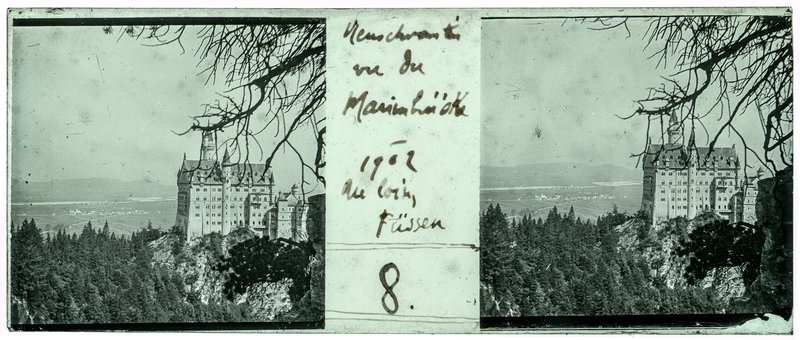 Neuschwanstein
vu du
Marienbrücke
1902
au loin,
Füssen
8.